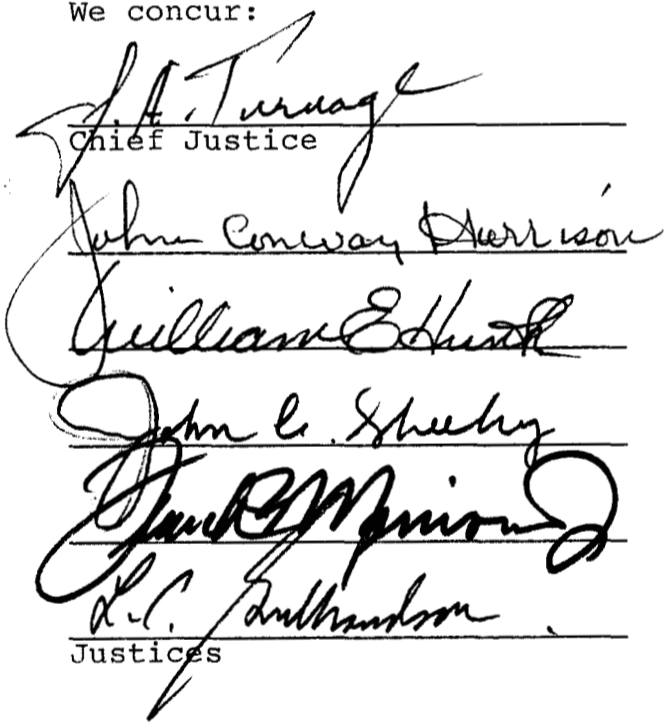 We concur:
J. A. Turnage
Chief Justice
John Conway Harrison
William E Hunt
John C. Sheehy
Frank B Morrison J
L.C. Gulbrandson
Justices